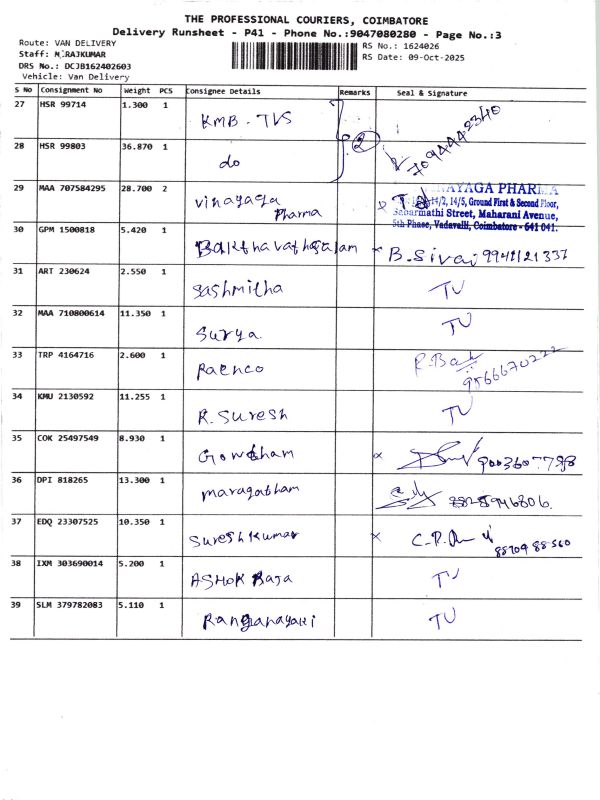 THE PROFESSIONAL COURIERS, COIMBATORE
Delivery Runsheet - P41 - Phone No.:9047080280 - Page No.:3
Route: VAN DELIVERY
Staff: M.RAJKUMAR
DRS No.: DCJB162402603
Vehicle: Van Delivery
RS No.: 1624026
RS Date: 09-Oct-2025
S No Consignment No Weight PCS Consignee Details Remarks Seal & Signature
27 HSR 99714 1.300 1 KMB - TVS
28 HSR 99803 36.870 1 do 2 7094442340
29 MAA 707584295 28.700 2 vinayaga Pharma x
NAYAGA PHARMA
14/2, 14/5, Ground First & Second Floor,
Sabarmathi Street, Maharani Avenue,
5th Phase, Vadavalli, Coimbatore - 641 041.
30 GPM 1500818 5.420 1 Bakthavathsalam x B.Sivaj 9941121337
31 ART 230624 2.550 1 Sashmitha TU
32 MAA 710800614 11.350 1 Surya TU
33 TRP 4164716 2.600 1 Raenco 9566670222
34 KMU 2130592 11.255 1 R. Suresh TU
35 COK 25497549 8.930 1 Gowtham x 9003607798
36 DPI 818265 13.300 1 maragatham
37 EDQ 23307525 10.350 1 Sureshkumar x 88709 88560
38 IXM 303690014 5.200 1 ASHOK Raja TU
39 SLM 379782083 5.110 1 Ranganayaki TU